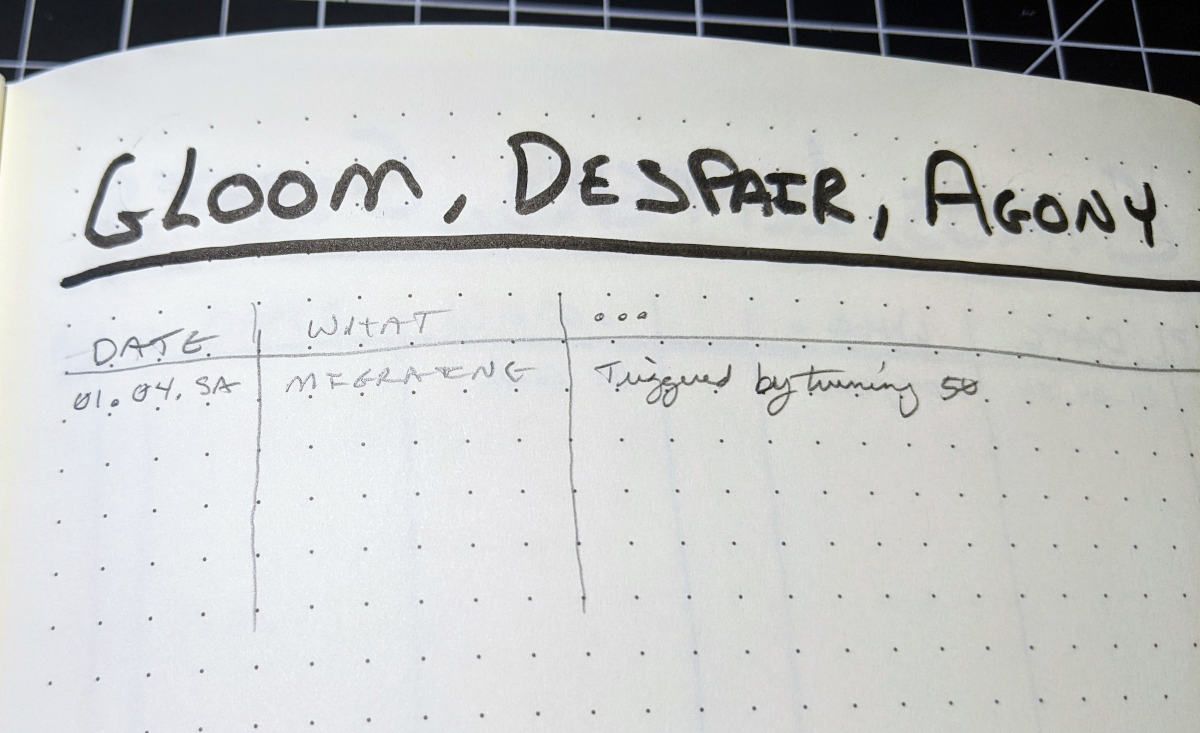 GLOOM, DESPAIR, AGONY
DATE WHAT ...
01.04.SA MIGRAING Triggered by turning 50